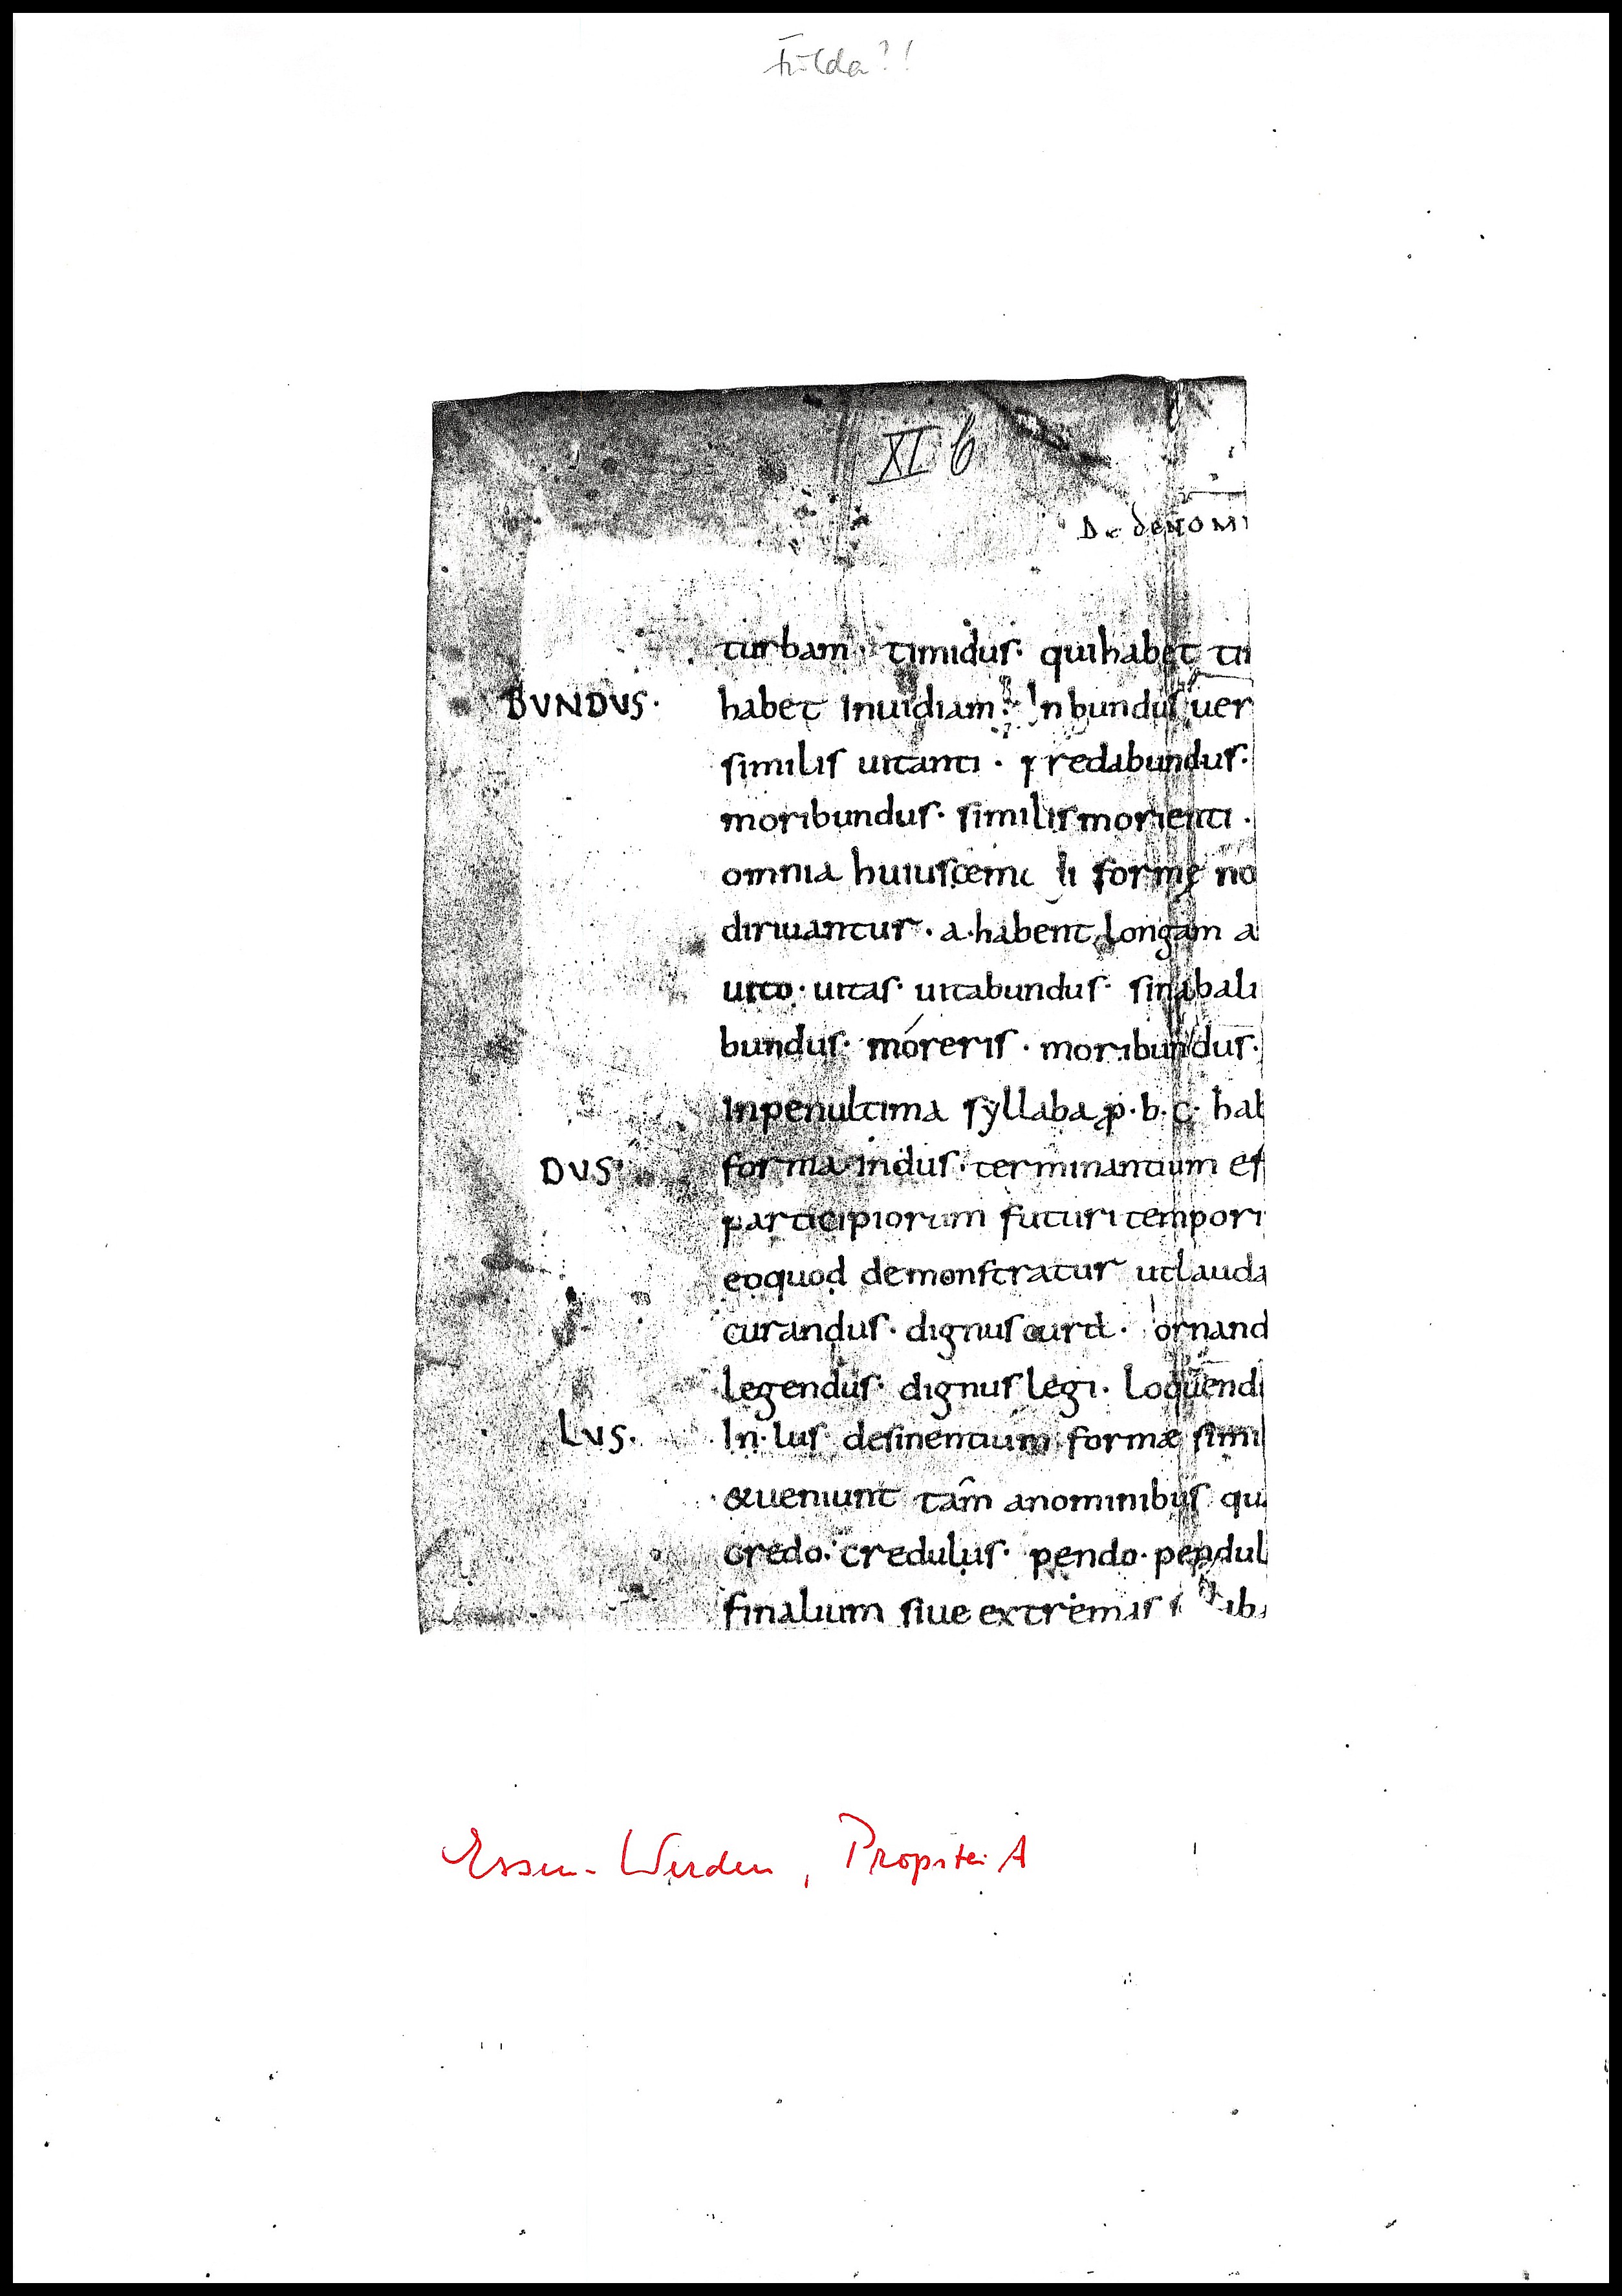 Fulda?!
XI b
De deNOMI
turbam · timidus · qui habet ti
BVNDVS · habet Inuidiam · In bundus uer
similis uitanti · predabundus ·
moribundus · similis morienti ·
omnia huiuscem li formę no
diriuantur · a · habent longam a
uito · uitas · uitabundus · sin abali
bundus · móreris · moribundus ·
Inpenultima syllaba p · b · c · hab
DVS · forma indus · terminantium es
participiorum futuri tempori
eoquod demonstratur utlauda
curandus · dignus curari · ornand
legendus · dignus legi · Loquend
LVS · In · lus · desinentium formæ simil
&ueniunt tam̂ anominibus qu
credo · credulus · pendo · pendul
finalium siue extremas
Essen-Werden, Propstei A